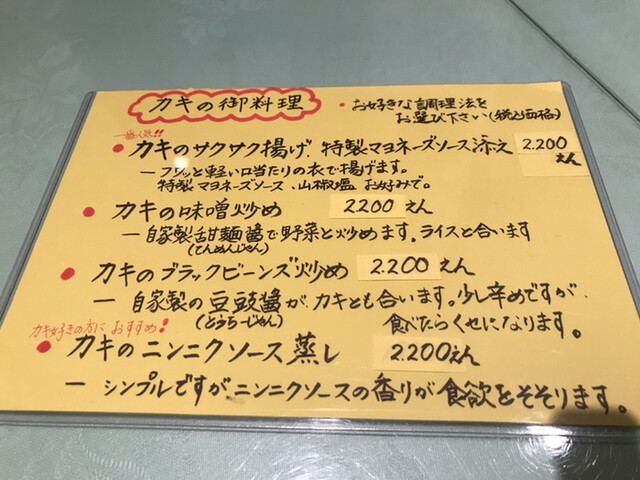 カキの御料理
・お好きな調理法を
お選び下さい(税込価格)
一番人気!!
●カキのサクサク揚げ 特製マヨネーズソース添え 2.200
えん
―フワッと軽い口当たりの衣で揚げます。
特製マヨネーズソース、山椒塩 お好みで。
●カキの味噌炒め 2200えん
―自家製甜麺醤で野菜と炒めます。ライスと合います
(てんめんじゃん)
●カキのブラックビーンズ炒め 2.200えん
―自家製の豆豉醤が、カキとも合います。少し辛めですが、
(とうちーじゃん)
食べたらくせになります。
カキ好きの方に おすすめ!
●カキのニンニクソース蒸し 2.200えん
―シンプルですが、ニンニクソースの香りが食欲をそそります。